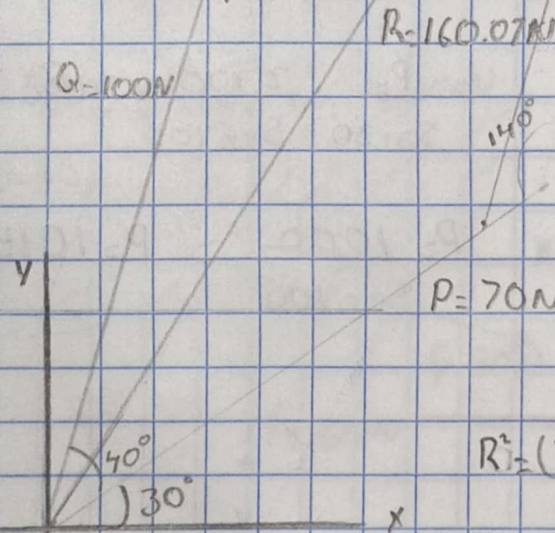 R=160.07N
Q=100N
140°
y
P=70N
40°
R²=(
30°
x